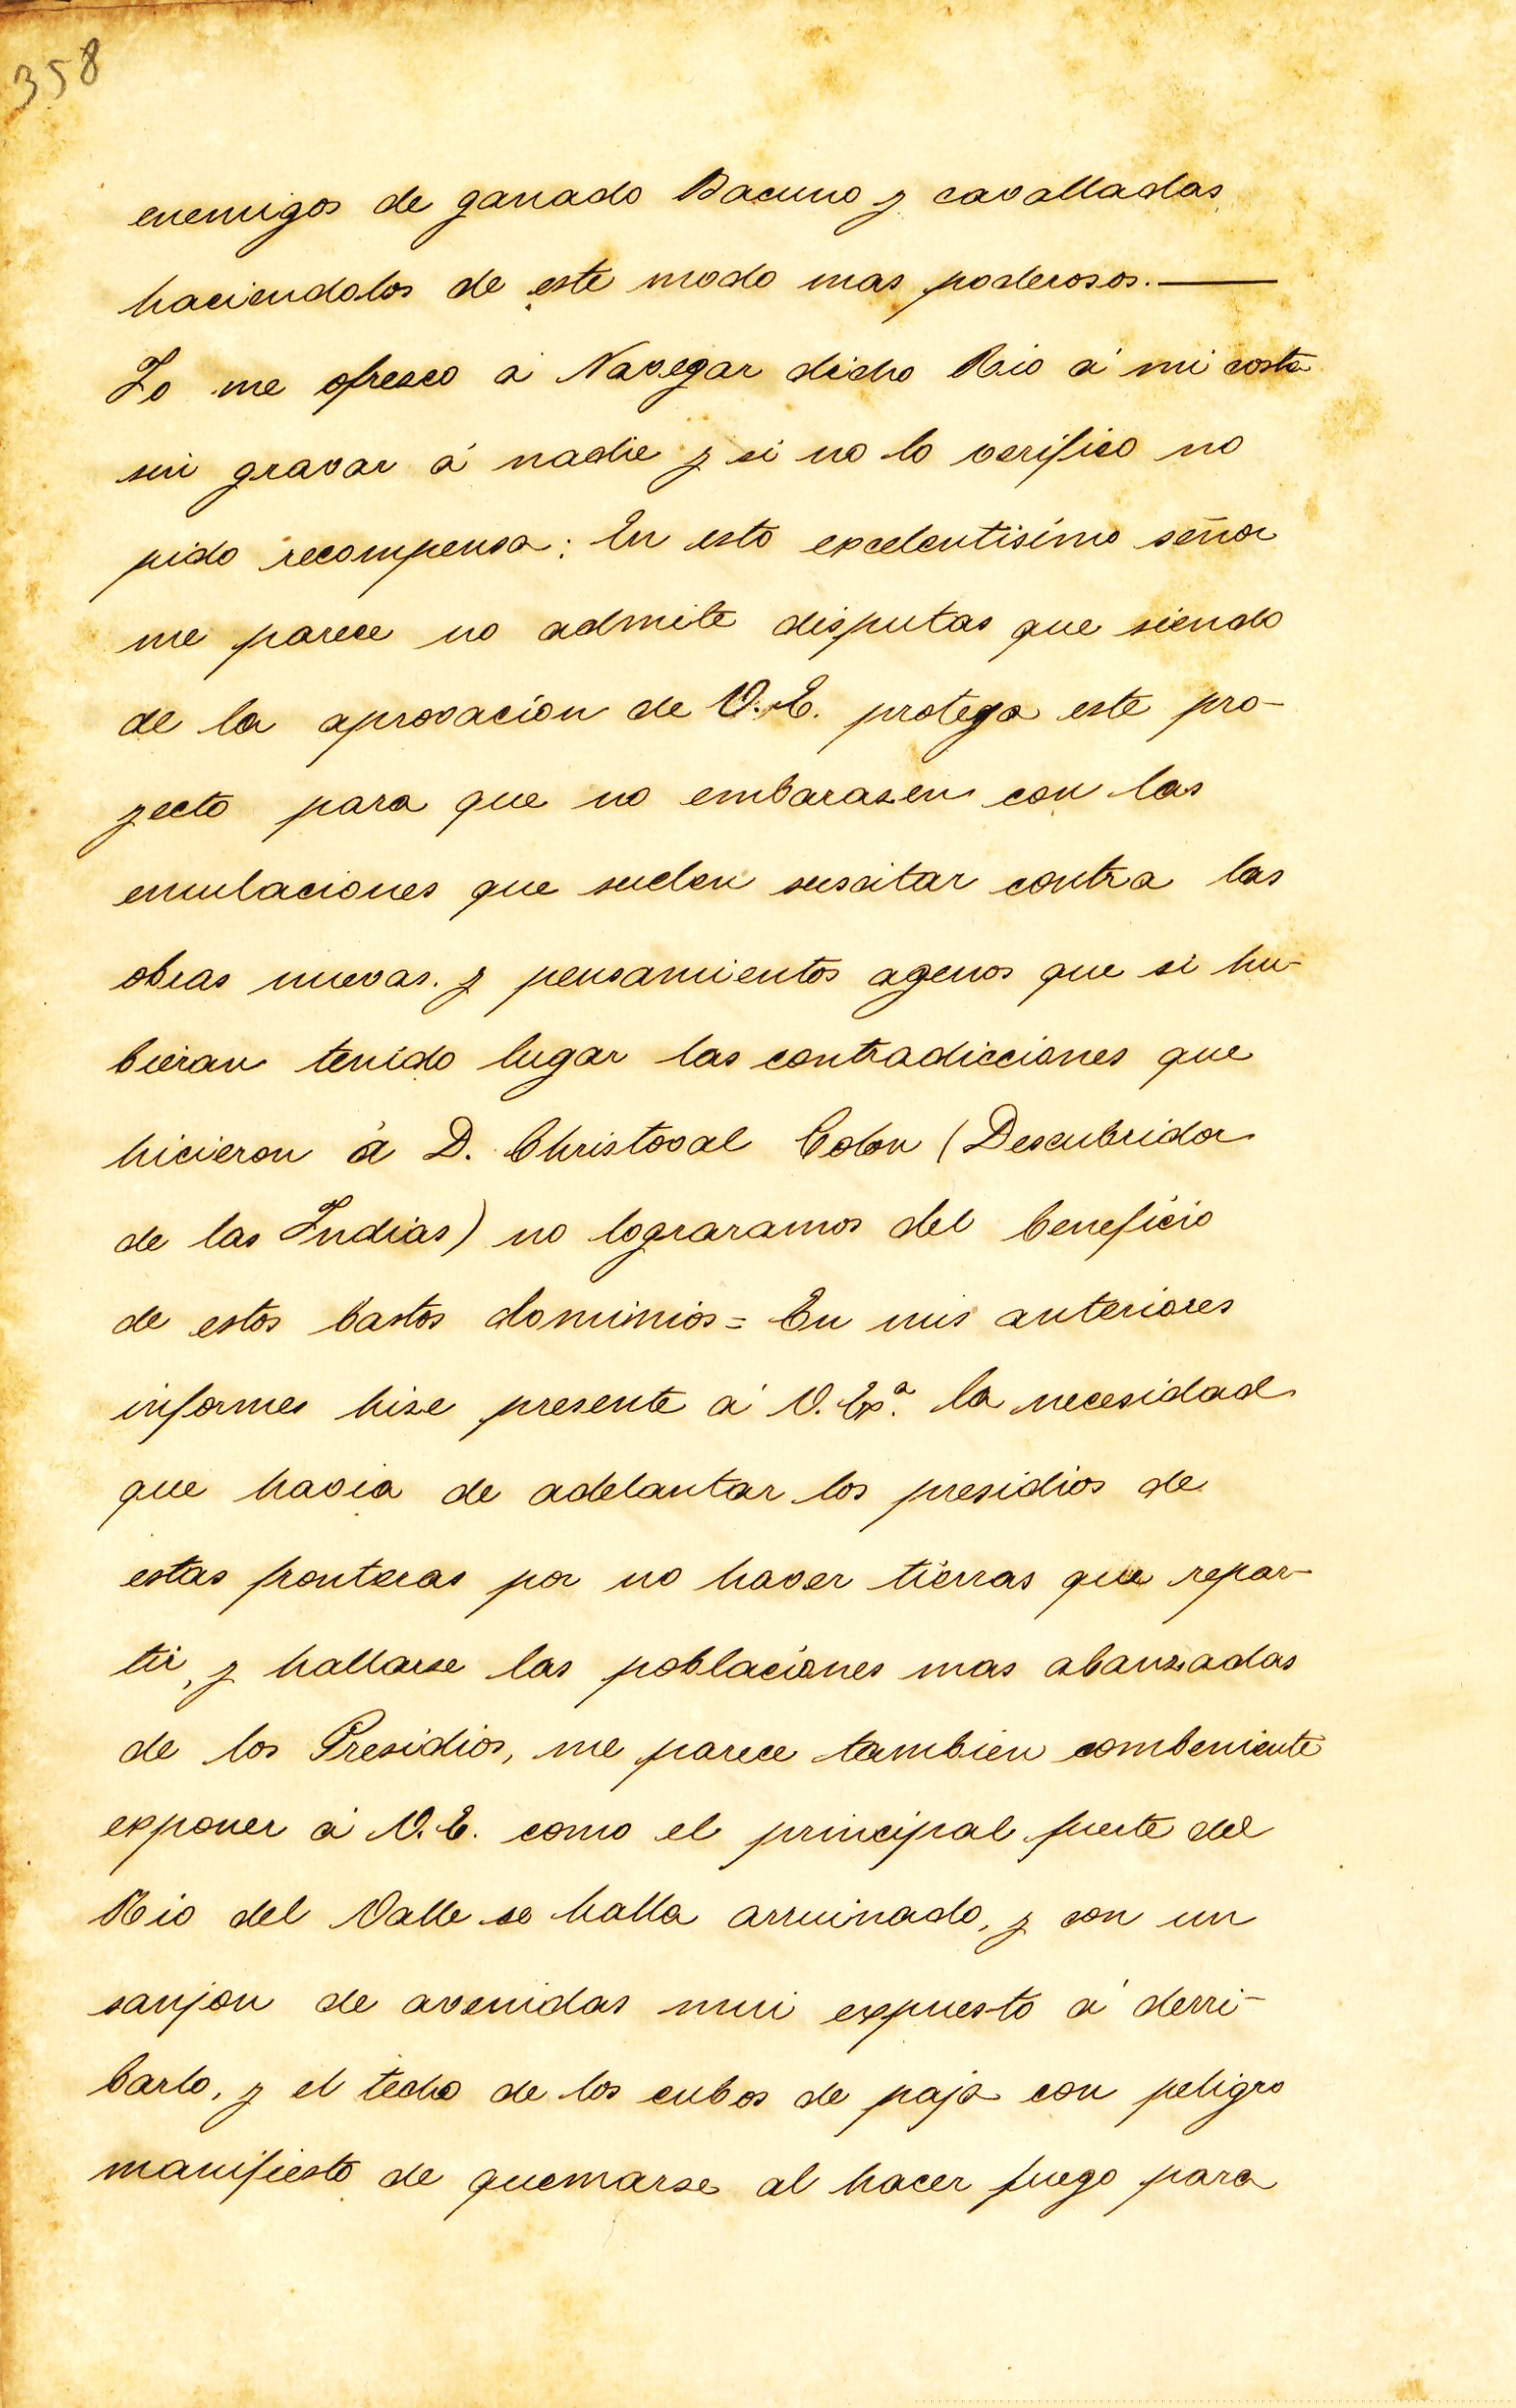 358
enemigos de ganado Bacuno y cavalladas
haciendolos de este modo mas poderosos.—
Yo me ofresco á Navegar dicho Rio á mi costa
sin gravar á nadie y si no lo verifico no
pido recompensa: En esto excelentisimo señor
me parece no admite disputas que siendo
de la aprovacion de V.E. protega este pro-
yecto para que no embarasen con las
emulaciones que suelen suscitar contra las
obras nuevas. y pensamientos agenos que si hu-
bieran tenido lugar las contradicciones que
hicieron á D. Christoval Colon (Descubridor
de las Indias) no lograramos del beneficio
de estos bastos dominios = En mis anteriores
informes hize presente á V. Exª. la necesidad
que havia de adelantar los presidios de
estas fronteras por no haver tierras que repar-
tir, y hallarse las poblaciones mas abanzadas
de los Presidios, me parece tambien combeniente
exponer á V.E. como el principal fuerte del
Rio del Valle se halla arruinado, y con un
sanjon de avenidas mui expuesto á derri-
barlo, y el techo de los cubos de paja con peligro
manifiesto de quemarse al hacer fuego para